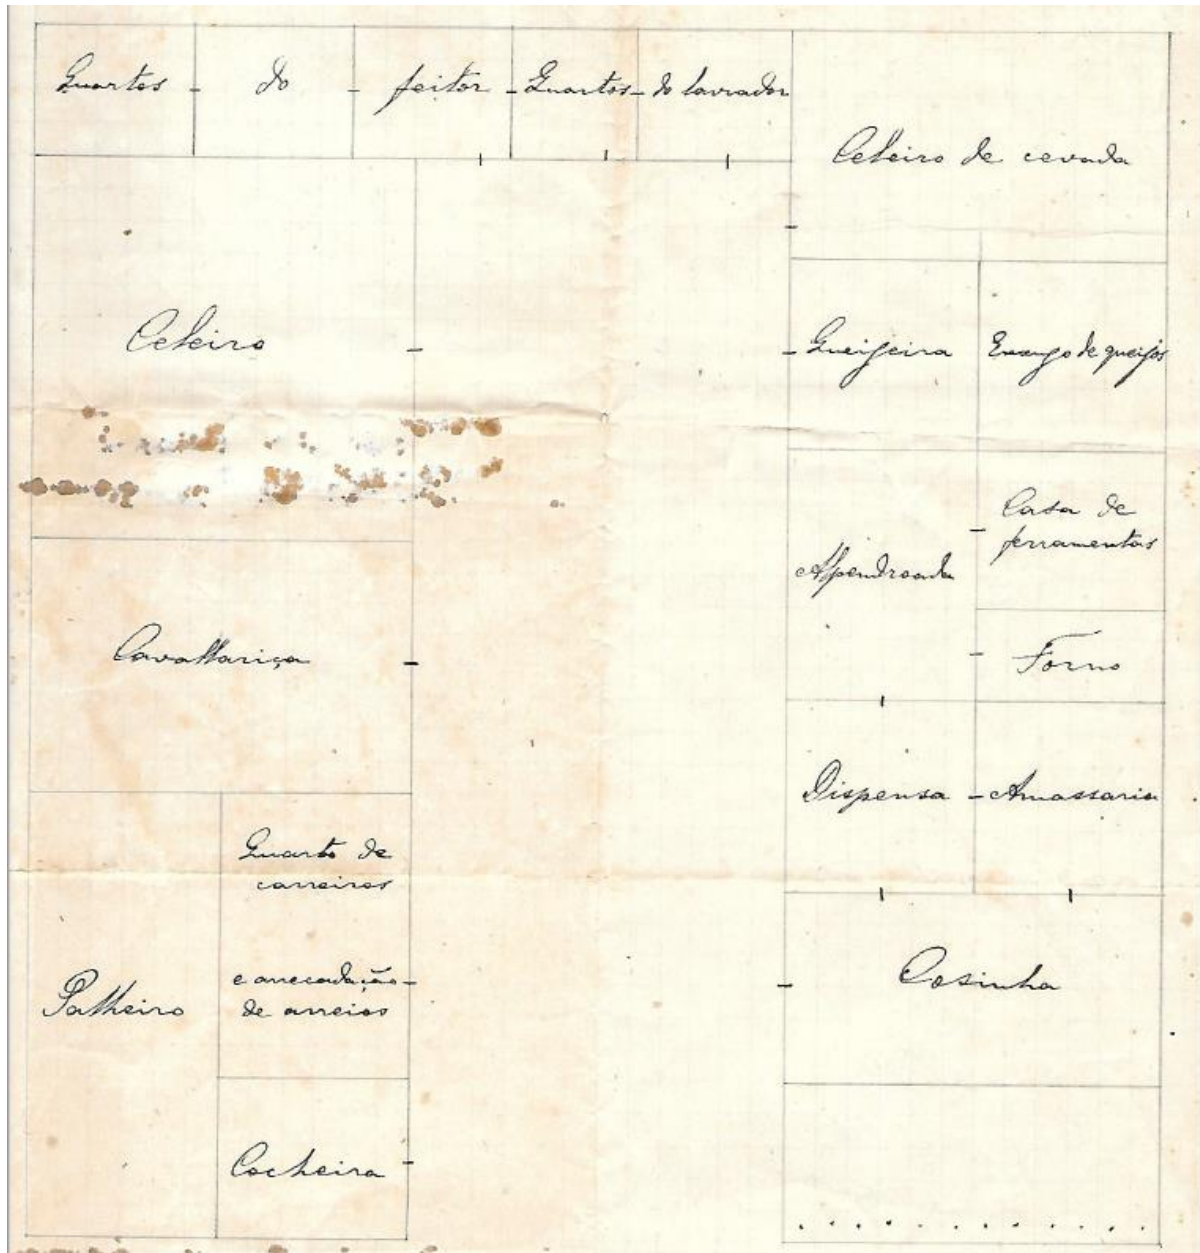 Quartos - do - feitor - Quartos - do lavrador
Celeiro de cevada
Celeiro
Queijeira
Enxugo de queijos
Casa de
ferramentas
Alpendroada
Cavallariça
Forno
Dispensa - Amassaria
Quarto de
carreiros
e arrecadação
de arreios
Palheiro
Cosinha
Cocheira